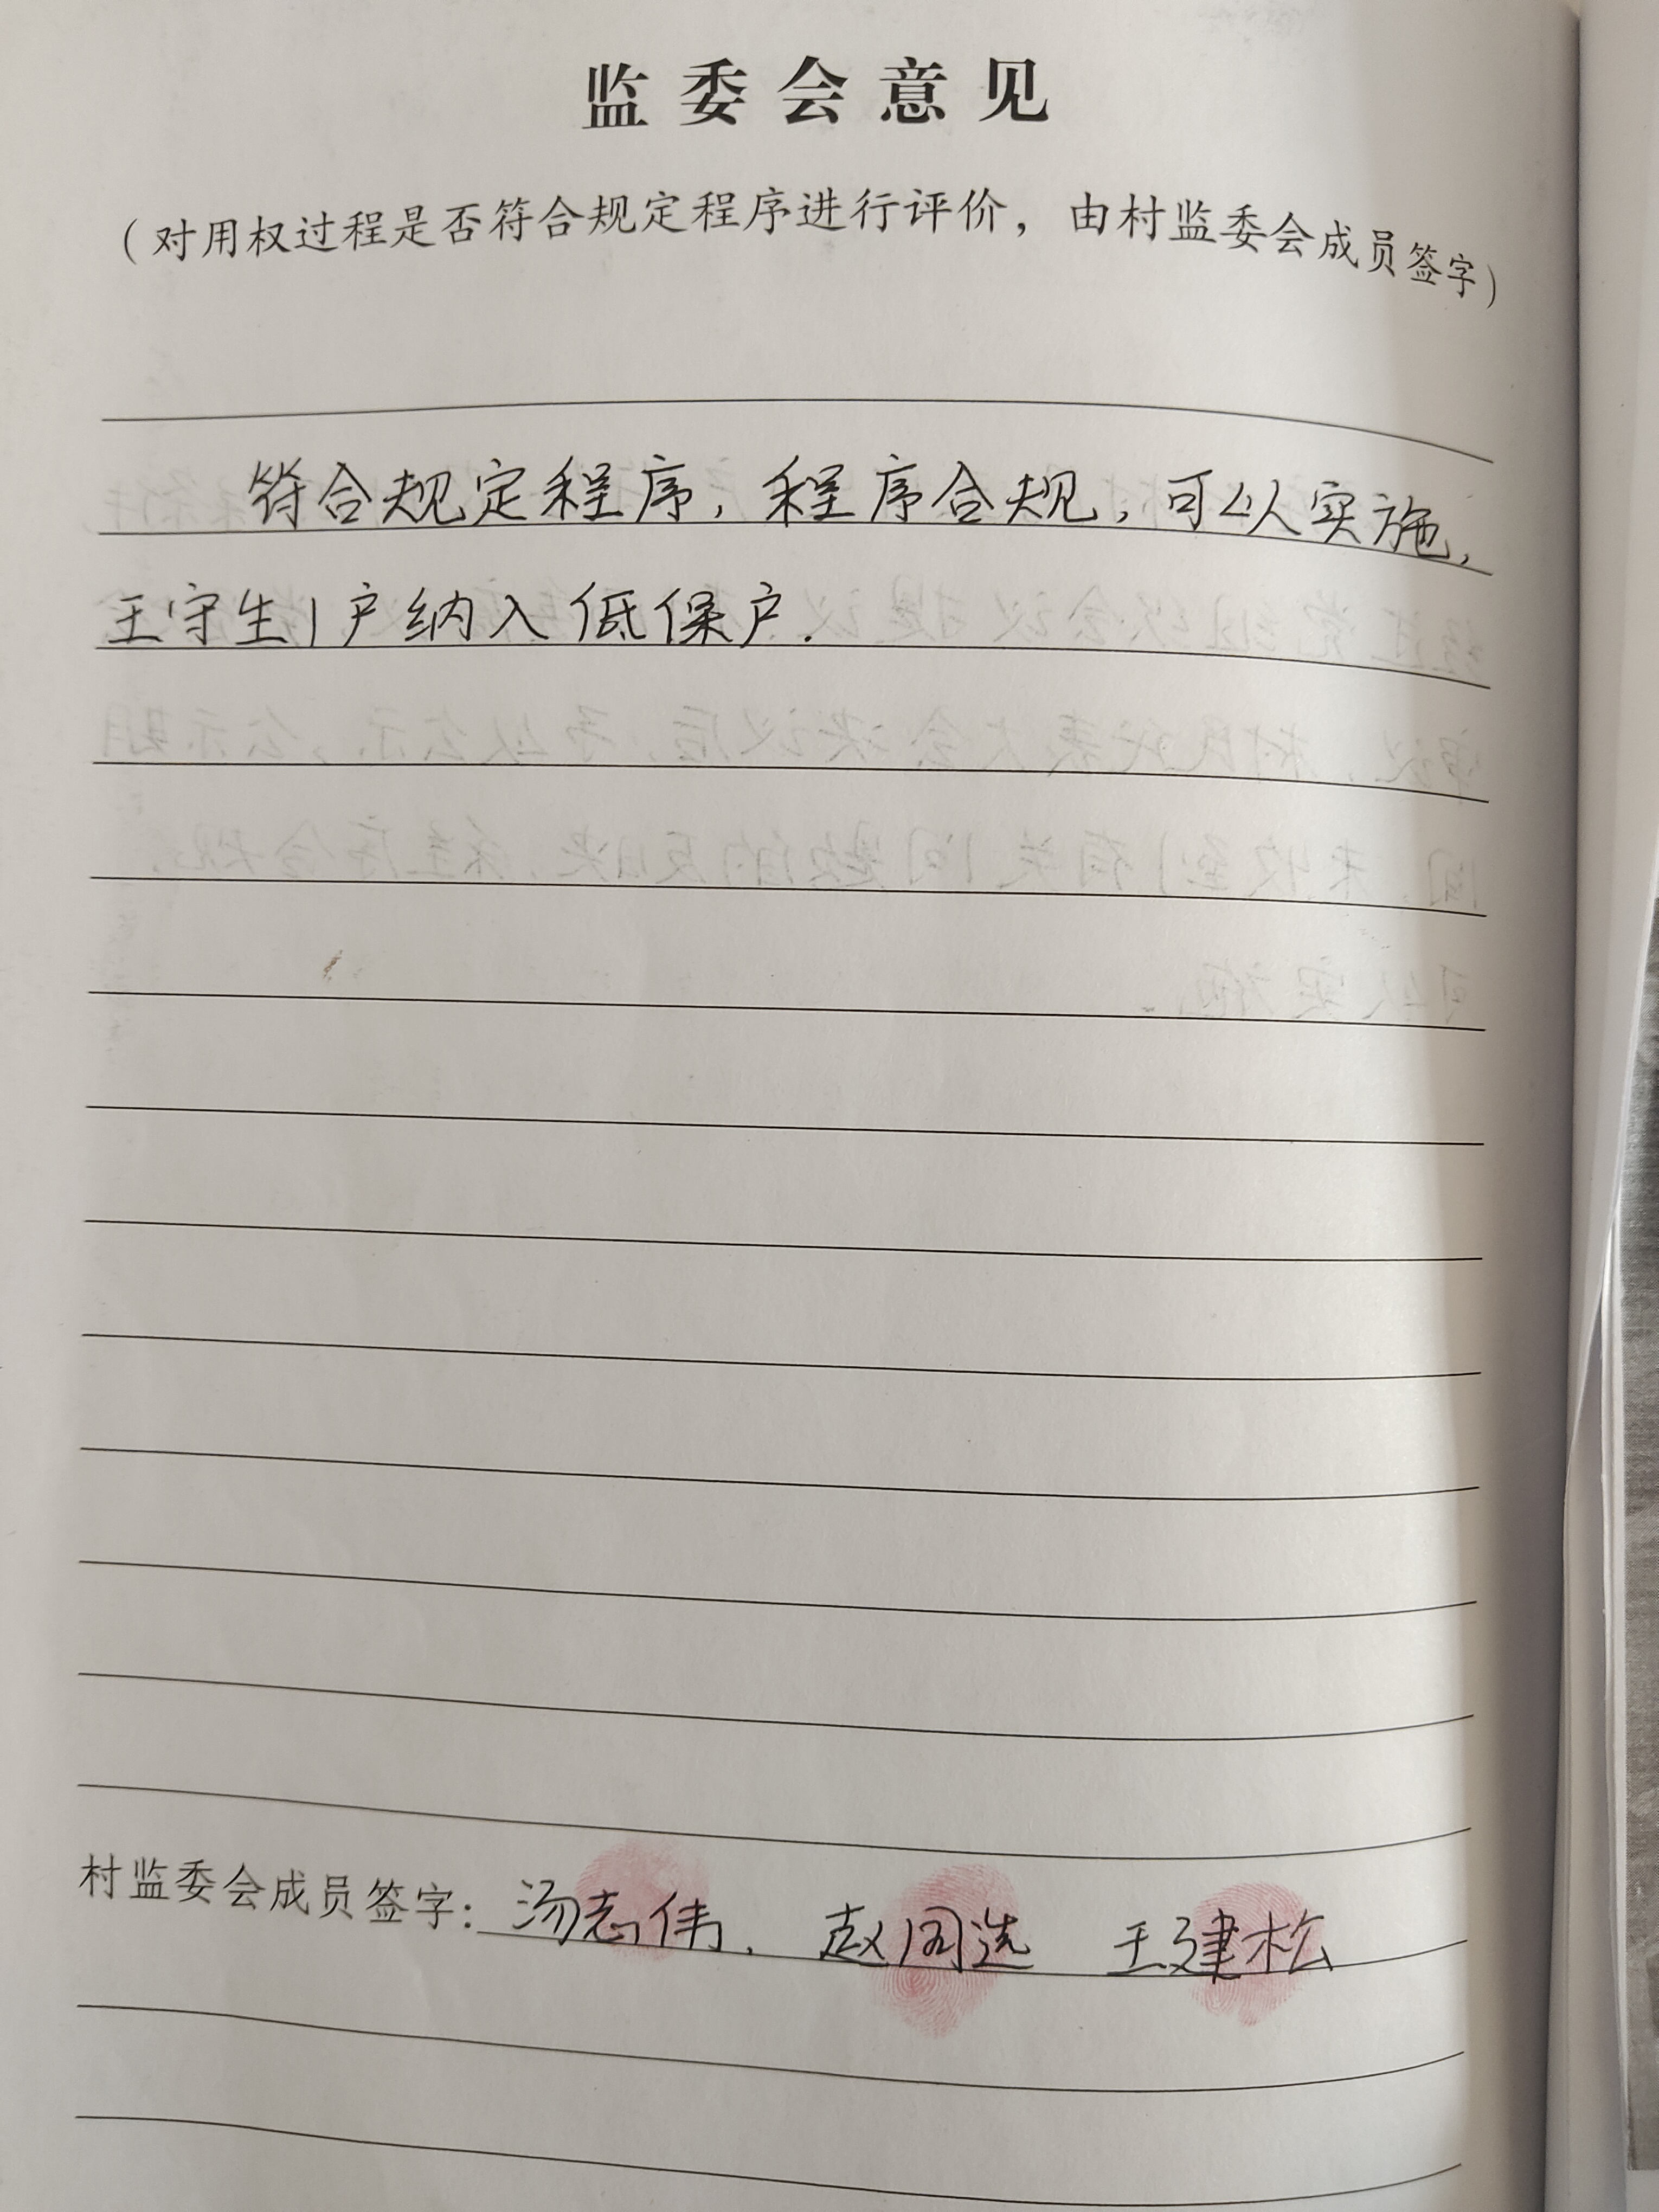 监委会意见
（对用权过程是否符合规定程序进行评价，由村监委会成员签字）
符合规定程序，程序合规，可以实施，
王守生1户纳入低保户.
村监委会成员签字：汤志伟. 赵国选 王建松